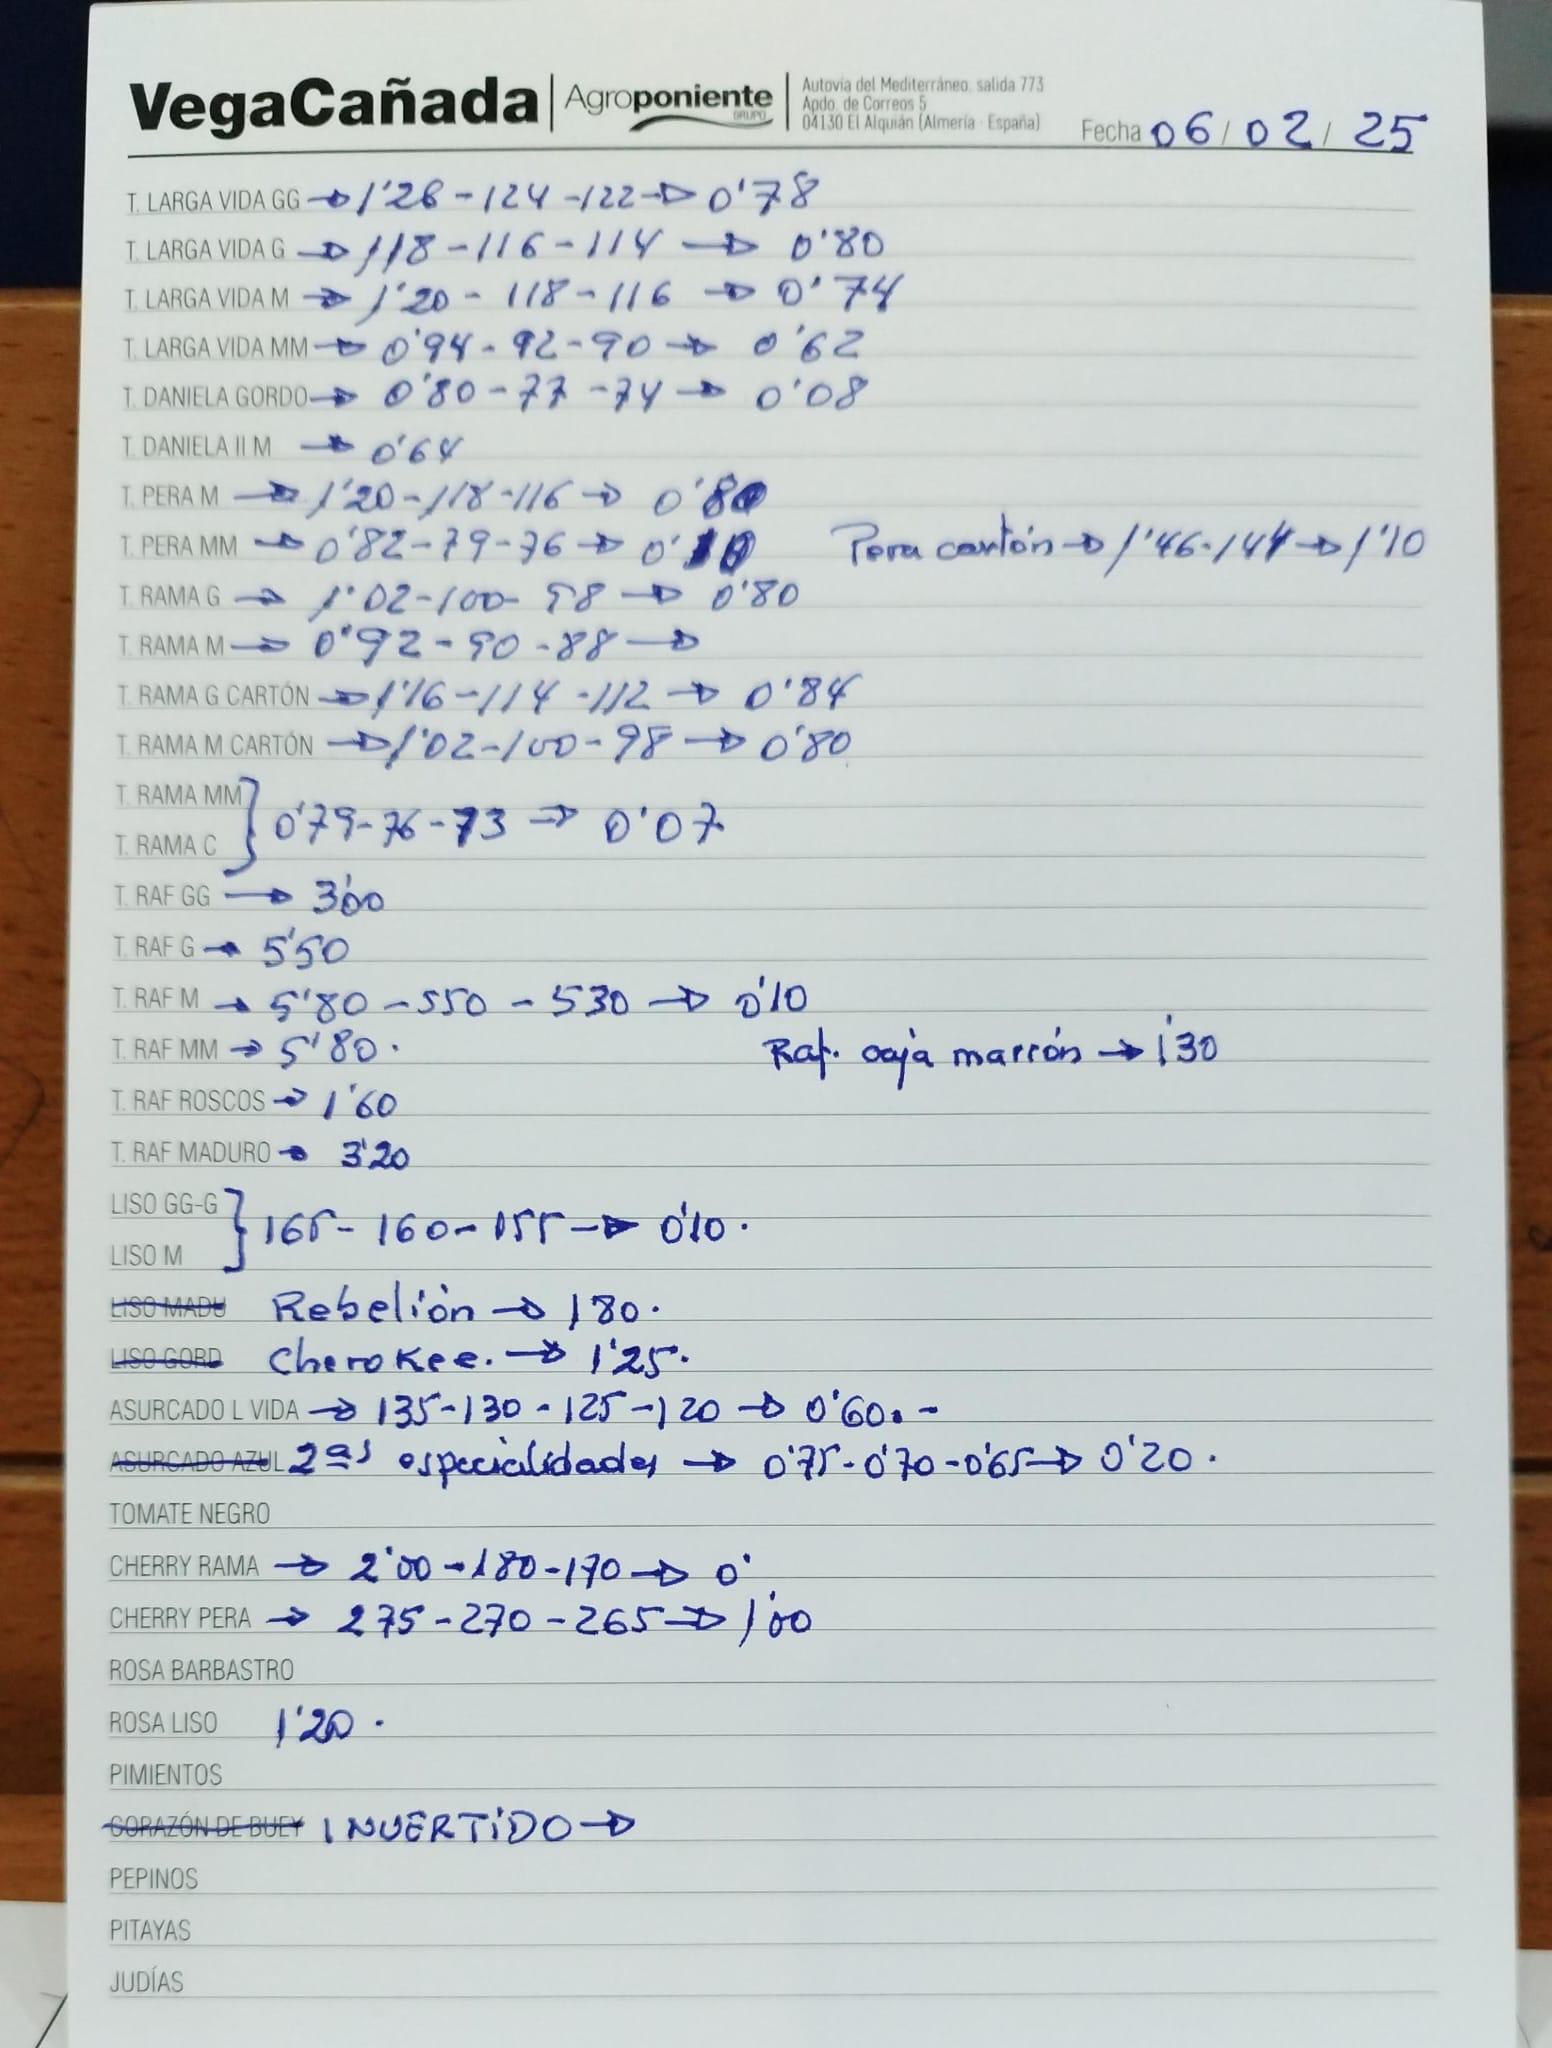 VegaCañada Agroponiente GRUPO
Autovía del Mediterráneo, salida 773
Apdo. de Correos 5
04130 El Alquián (Almería - España)
Fecha 06/02/25
T. LARGA VIDA GG → 1'26 - 124 - 122 → 0'78
T. LARGA VIDA G → 118 - 116 - 114 → 0'80
T. LARGA VIDA M → 1'20 - 118 - 116 → 0'74
T. LARGA VIDA MM → 0'94 - 92 - 90 → 0'62
T. DANIELA GORDO → 0'80 - 77 - 74 → 0'08
T. DANIELA II M → 0'64
T. PERA M → 1'20 - 118 - 116 → 0'80
T. PERA MM → 0'82 - 79 - 76 → 0'10 Pera cartón → 1'46 - 144 → 1'10
T. RAMA G → 1'02 - 100 - 98 → 0'80
T. RAMA M → 0'92 - 90 - 88 →
T. RAMA G CARTÓN → 1'16 - 114 - 112 → 0'84
T. RAMA M CARTÓN → 1'02 - 100 - 98 → 0'80
T. RAMA MM
T. RAMA C } 0'79 - 76 - 73 → 0'07
T. RAF GG → 3'00
T. RAF G → 5'50
T. RAF M → 5'80 - 550 - 530 → 0'10
T. RAF MM → 5'80. Raf. caja marrón → 1'30
T. RAF ROSCOS → 1'60
T. RAF MADURO → 3'20
LISO GG-G
LISO M } 165 - 160 - 155 → 0'10.
LISO MADU Rebelión → 180.
LISO GORD Cherokee. → 1'25.
ASURCADO L VIDA → 135 - 130 - 125 - 120 → 0'60. -
ASURCADO AZUL 2ªs especialidades → 0'75 - 0'70 - 0'65 → 0'20.
TOMATE NEGRO
CHERRY RAMA → 2'00 - 180 - 170 → 0'
CHERRY PERA → 275 - 270 - 265 → 1'00
ROSA BARBASTRO
ROSA LISO 1'20.
PIMIENTOS
CORAZÓN DE BUEY INVERTIDO →
PEPINOS
PITAYAS
JUDÍAS